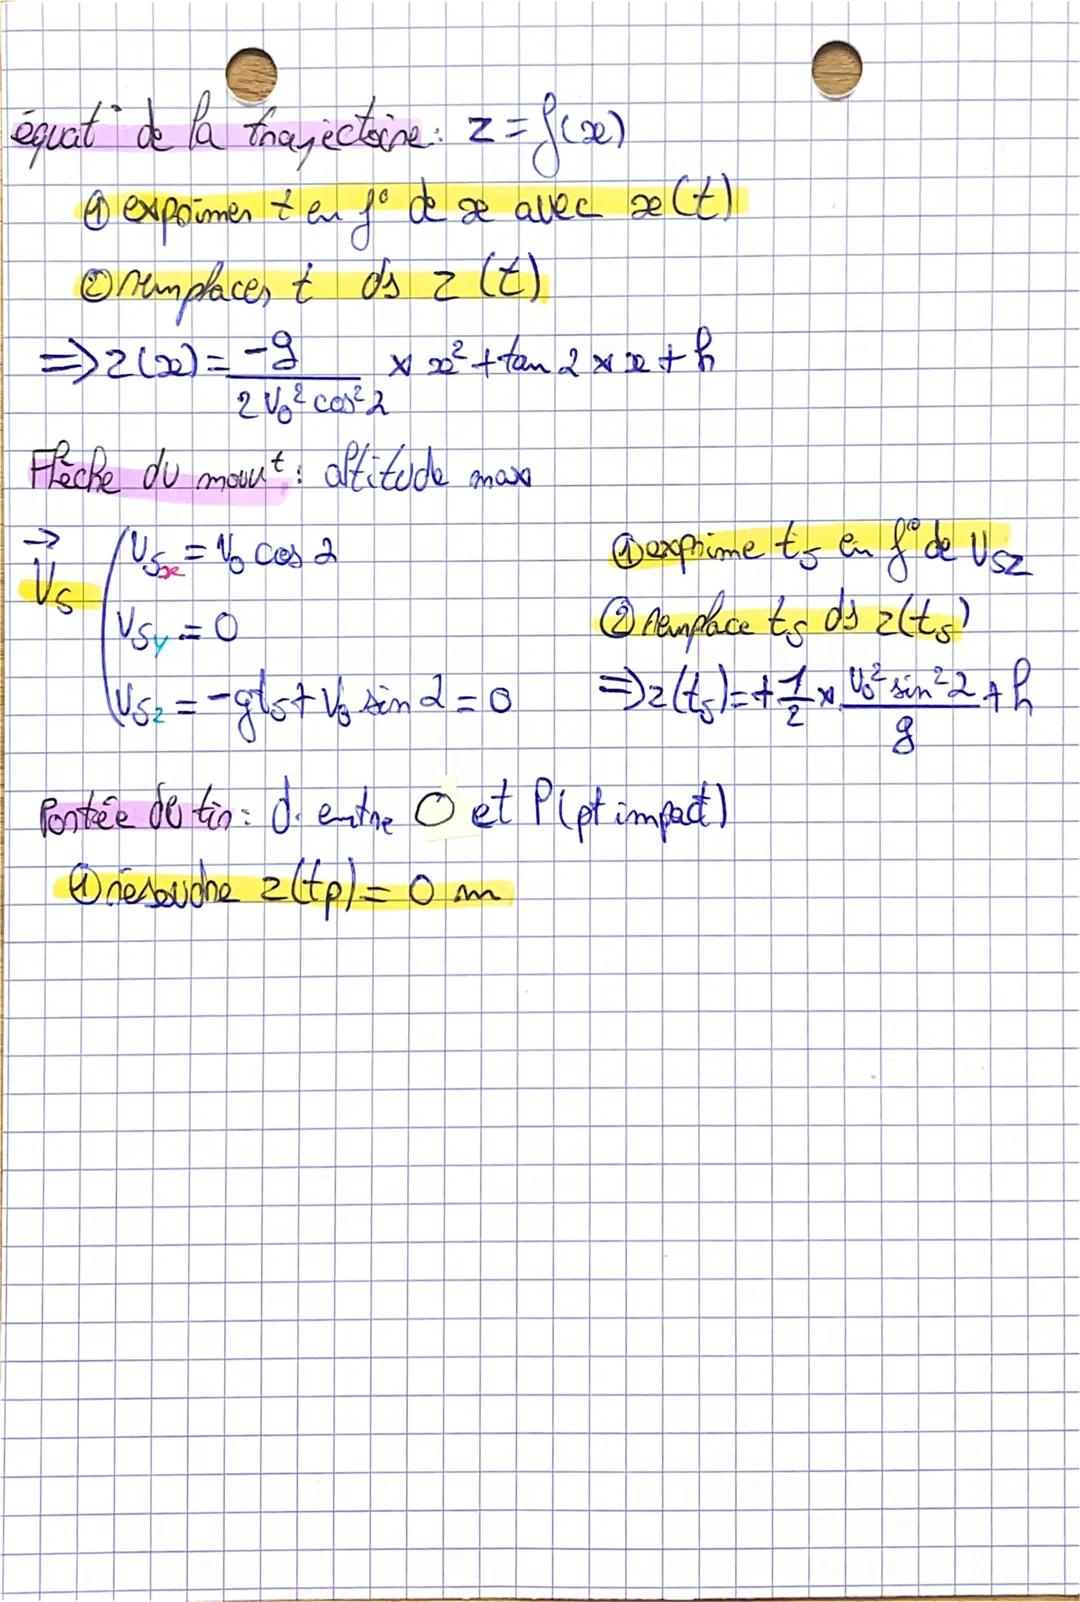 équat° de la trajectoire: z = f(x)
① exprimer t en f° de x avec x(t)
② remplacer t ds z(t)
=> z(x) = -g / (2 V₀² cos² α) × x² + tan α × x + h
Flèche du mouvt : altitude max
V⃗s ( Vsx = V₀ cos α
Vsy = 0
Vsz = -gts + V₀ sin α = 0
① exprime ts en f° de Vsz
② remplace ts ds z(ts)
=> z(ts) = + 1/2 × V₀² sin² α / g + h
Portée de tir: d. entre O et P (pt impact)
① résoudre z(tp) = 0 m